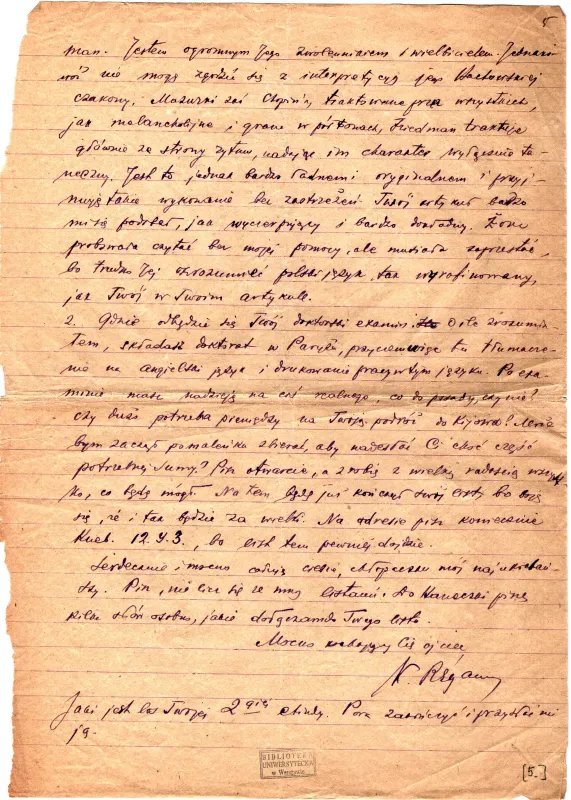 5
man. Jestem ogromnym Jego zwolennikiem i wielbicielem. Jednako-
woż nie mogę zgodzić się z interpretacją jego
czakony. Mazurki zaś Chopin'a, traktowane prze wszystkich,
jak melancholijne i grane w półtonach, Friedman traktuje
głównie ze strony rytmu, nadając im charakter wyłącznie ta-
neczny. Jest to jednak bardzo ładnem i oryginalnem i przyj-
muję takie wykonanie bez zastrzeżeń. Twój artykuł bardzo
mi się podobał, jak wyczerpujący i bardzo dokładny. Żona
probowała czytać bez mojej pomocy, ale musiała zaprzestać,
bo trudno Jej zrozumieć polski język, tak wyrafinowany,
jak Twój w Twoim artykule.
2. Gdzie odbędzie się Twój doktorski examin? O ile zrozumia-
łem, składasz doktorat w Paryżu, przyciem tłumacze-
nie na angielski język i drukowanie pracy w tym języku. Po exa-
minie masz nadzieję na coś realnego, co do posady, czy nie?
Czy dużo potrzeba pieniędzy na Twoją podróż do Kijowa?
bym zacząć pomaleńku zbierać, aby nadesłać Ci choć część
potrzebnej sumy? Pisz otwarcie, a zrobię z wielką radością wszyst-
ko, co będę mógł. Na tem będę już kończyć swój list, bo boję
się, że i tak będzie za wielki. Na adresie pisz koniecznie
12. 43., bo list tem pewniej dojdzie.
Serdecznie i mocno całuję ciebie, chłopczeku mój najukochań-
szy. Pisz, nie licz się ze mną listami. Do piszę
kilka słów osobno, jakie dołączam do Twego listu.
Mocno kochający Cię ojciec
N. Régamey
Jaki jest los Twojej 2giej etiudy. Pora zakończyć i przysłać mi
ją.
BIBLIOTEKA
UNIWERSYTECKA
w Warszawie
[5.]